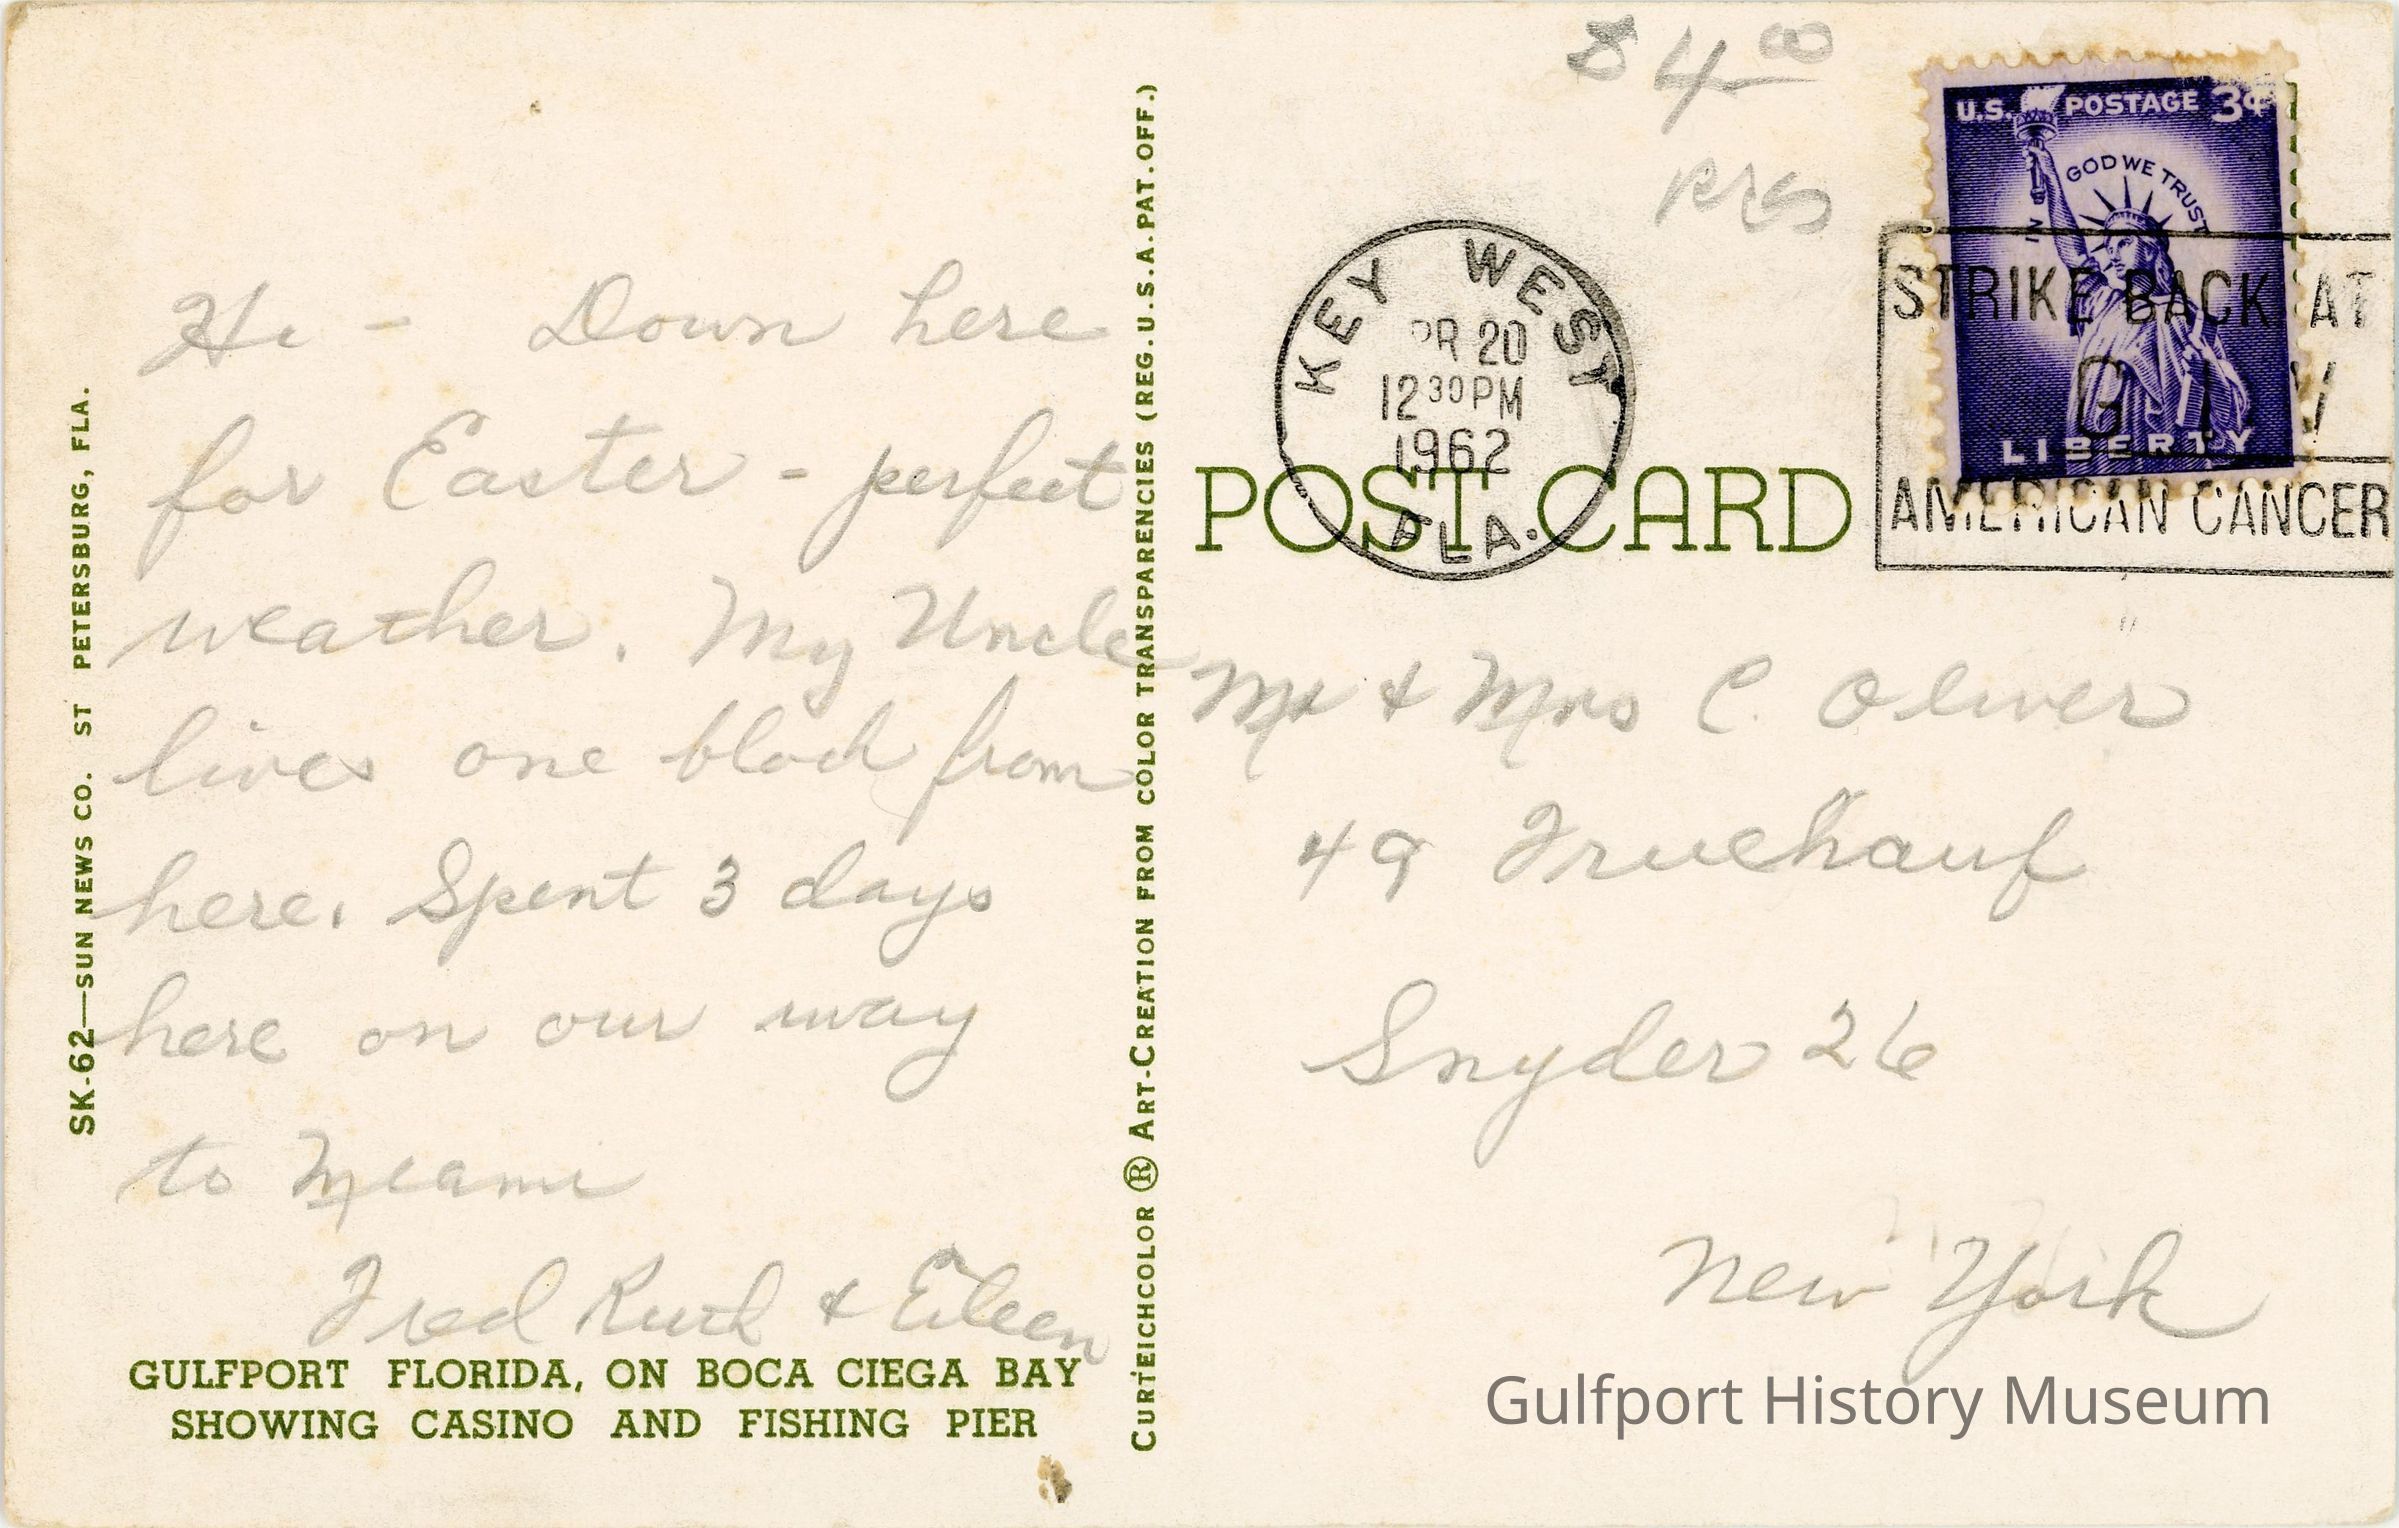 $4.00
U.S. POSTAGE 3¢
IN GOD WE TRUST
LIBERTY
KEY WEST
PR 20
12 30 PM
1962
FLA.
STRIKE BACK AT
G I V
AMERICAN CANCER
POST CARD
Hi - Down here
for Easter - perfect
weather. My Uncle
lives one block from
here. Spent 3 days
here on our way
to Miami
Fred Ruth & Eileen
GULFPORT FLORIDA, ON BOCA CIEGA BAY
SHOWING CASINO AND FISHING PIER
SK-62—SUN NEWS CO. ST PETERSBURG, FLA.
CURTEICHCOLOR ® ART-CREATION FROM COLOR TRANSPARENCIES (REG. U.S.A. PAT. OFF.)
Mr & Mrs C. Oliver
49 Fruehauf
Snyder 26
New York
Gulfport History Museum